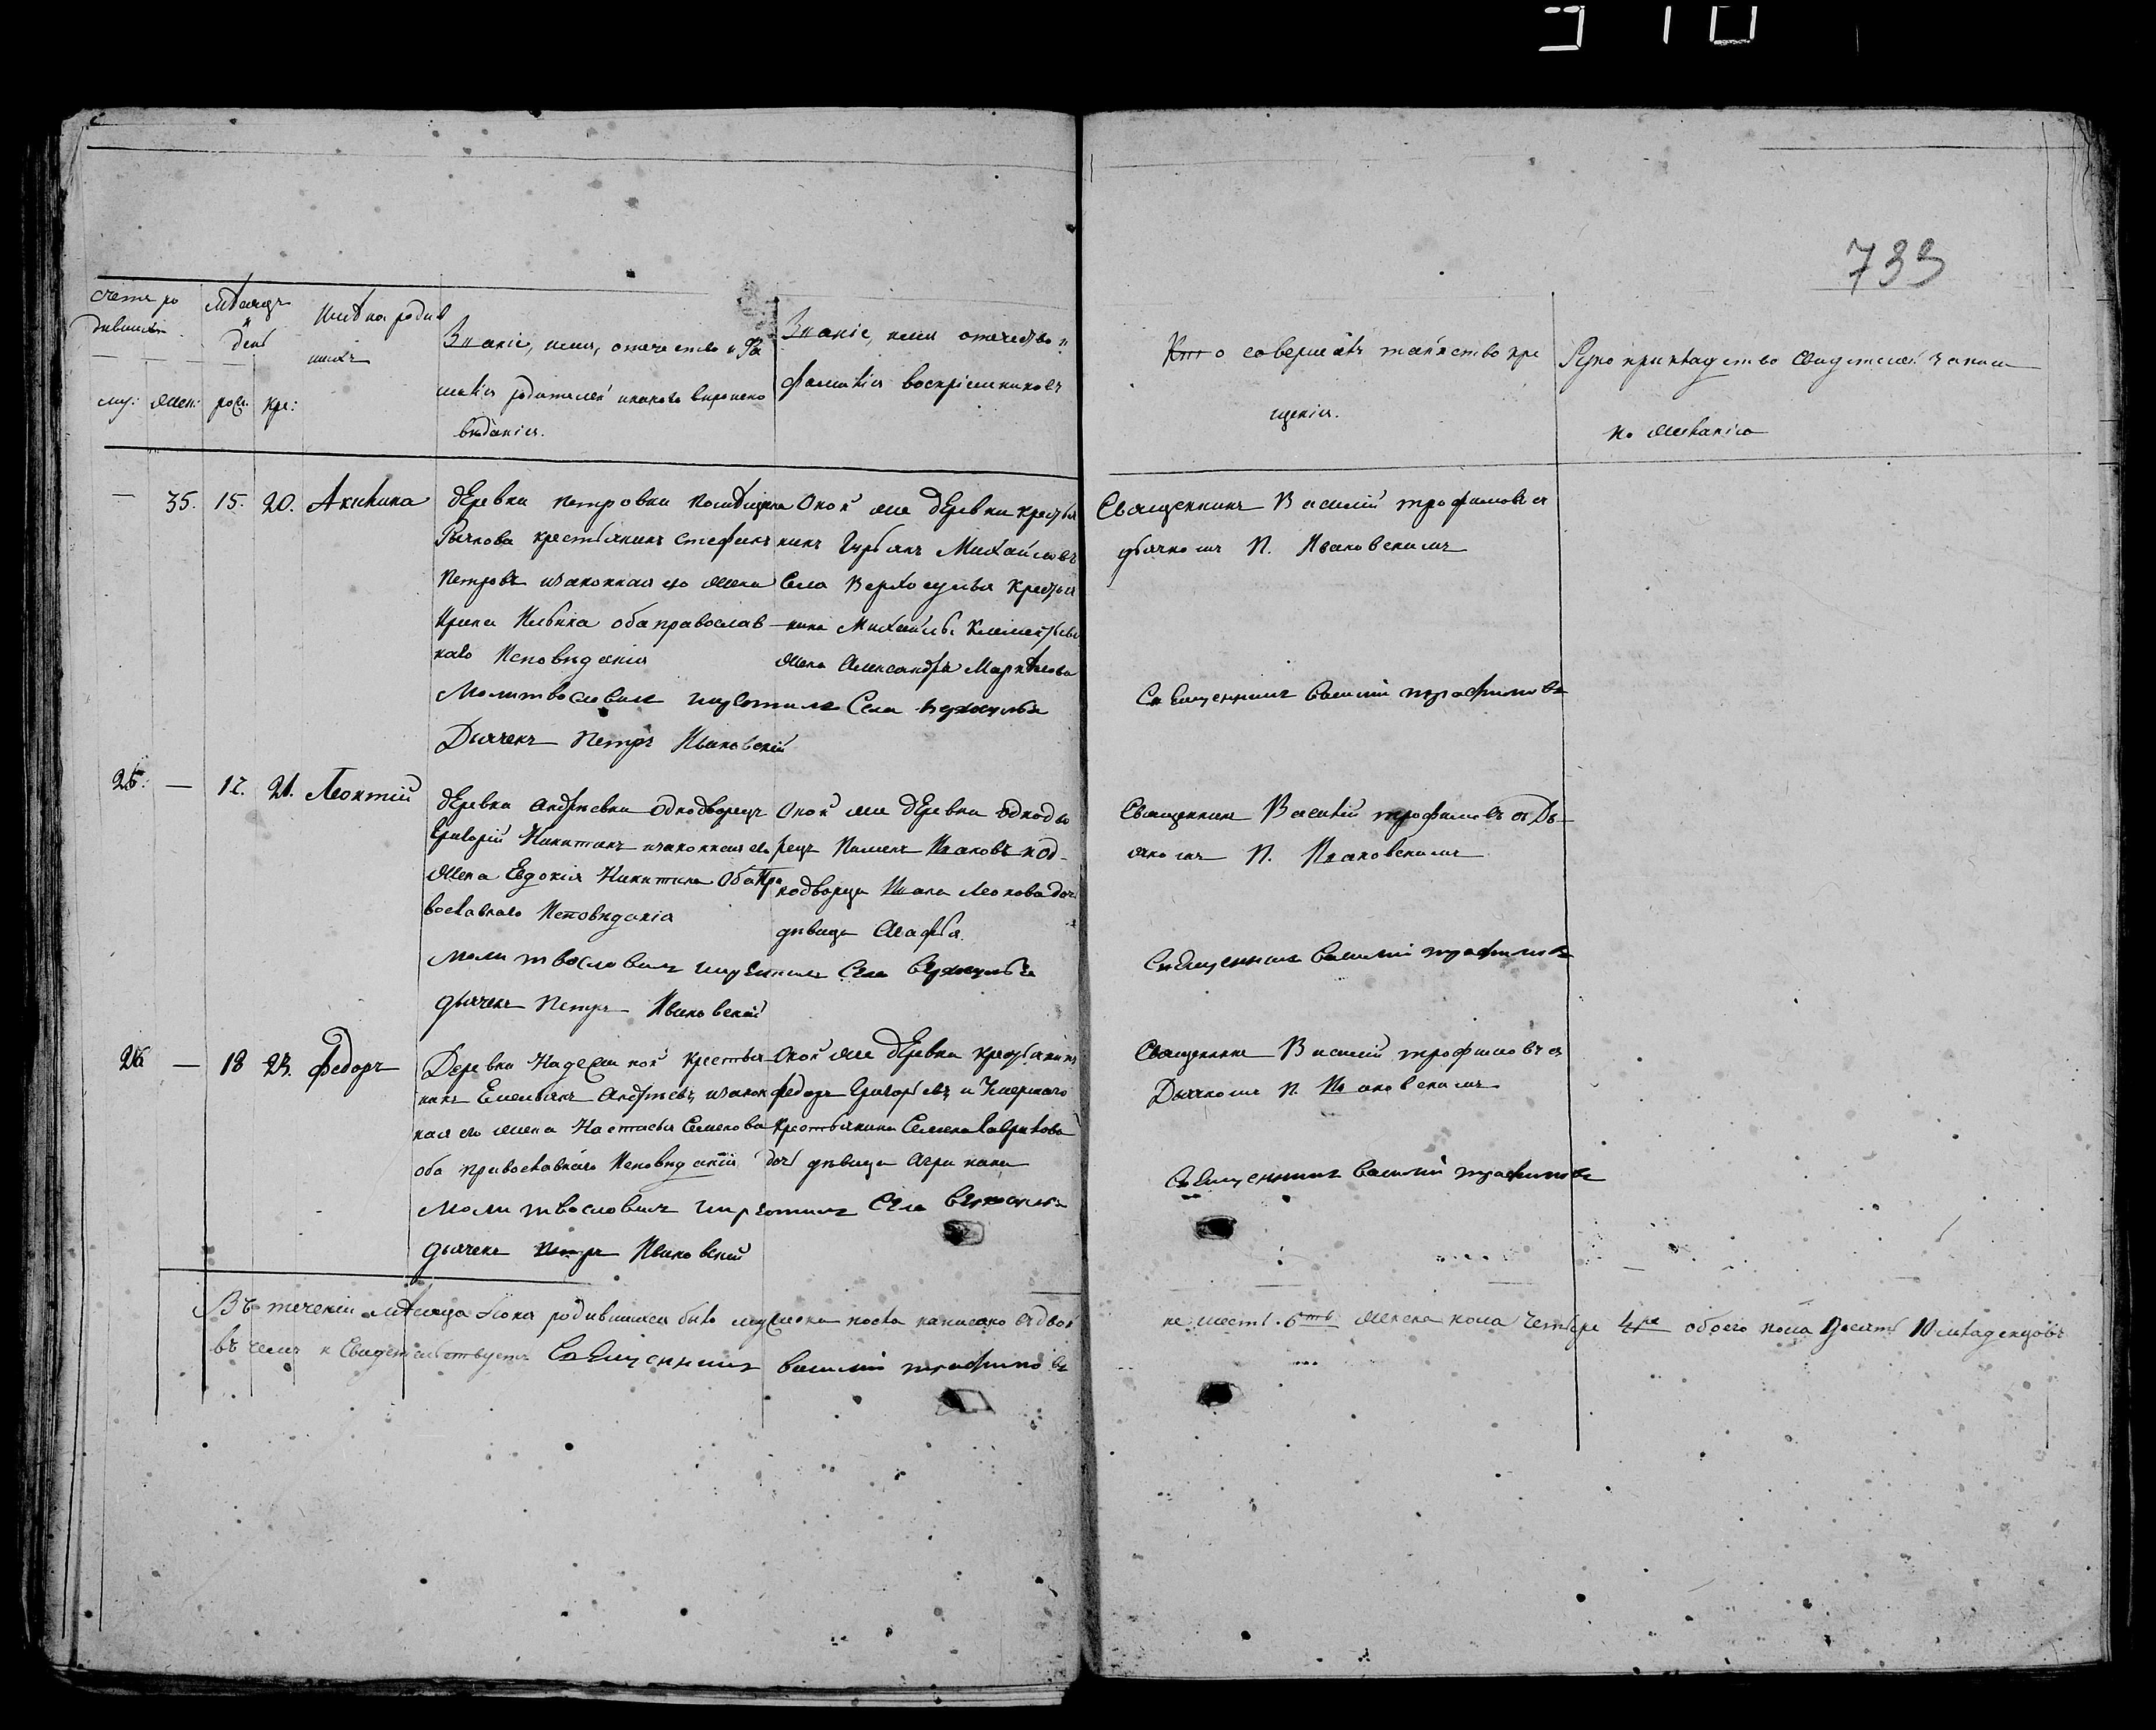 733
Счетъ ро
дившихъ
Мѣсяцъ
и
день
Имена родив
шихъ
Званіе, имя, отечество и Фа
милія родителей и какого вѣроиспо
вѣданія.
Званіе, имя отечество и
фамилія воспріемниковъ
Кто совершалъ таинство кре
щенія.
Рукоприкладство свидетелей записи
по желанію
му: жен: рож. кре:
— 35. 15. 20. Акилина
деревни Петровки помѣщика
крестьянинъ Стефанъ
Петровъ изаконная его жена
Ирина Ильина оба православ
наго Исповѣданія
Оной же деревни кресть
нинъ Михайловъ
Села Верхосулья крестья
нина Михайлы
жена Александра
Священникъ Василій трофимовъ съ
дьячкомъ П. Ивановскимъ
Молитвословилъ икрестилъ Села верхосулья
Дьячекъ Петръ Ивановскій
Священникъ Василий трофимовъ
25. — 17. 21. Леонтій
деревни Андреевки однодворецъ
Григорій Никитинъ изаконная его
жена Евдокія Никитина Оба Пра
вославнаго Исповѣданія
Оной же деревни однодво
рецъ Пименъ Ивановъ и од-
нодворца Ивана Леонова доч
дѣвица Агафья
Священникъ Василій трофимовъ съ Дь
ячкомъ П. Ивановскимъ
молитвословилъ икрестилъ Села верхосулья
дьячекъ Петръ Ивановскій
Священникъ Василий трофимовъ
26 — 18 23. Федоръ
Деревни крестья
нинъ Емельянъ Андреевъ, изакон
ная его жена Настасья Семенова
оба православнаго Исповѣданія
Оной же деревни крестьянинъ
Федоръ Григорьевъ и Умершаго
крестьянина Семена Гаврилова
дочь дѣвица Агрипина
Священникъ Василій трофимовъ съ
Дьячкомъ П. Ивановскимъ
молитвословилъ икрестилъ Села верхосулья
дьячекъ Петръ Ивановскій
Священникъ Василий трофимовъ
Въ теченіи мѣсяца Іюня родившихся было мужеска пола написано
шесть 6ть женска пола четыре 4ре обоего пола Десять 10 младенцовъ
въ чемъ и Свидетельствуетъ Священникъ Василий трофимовъ